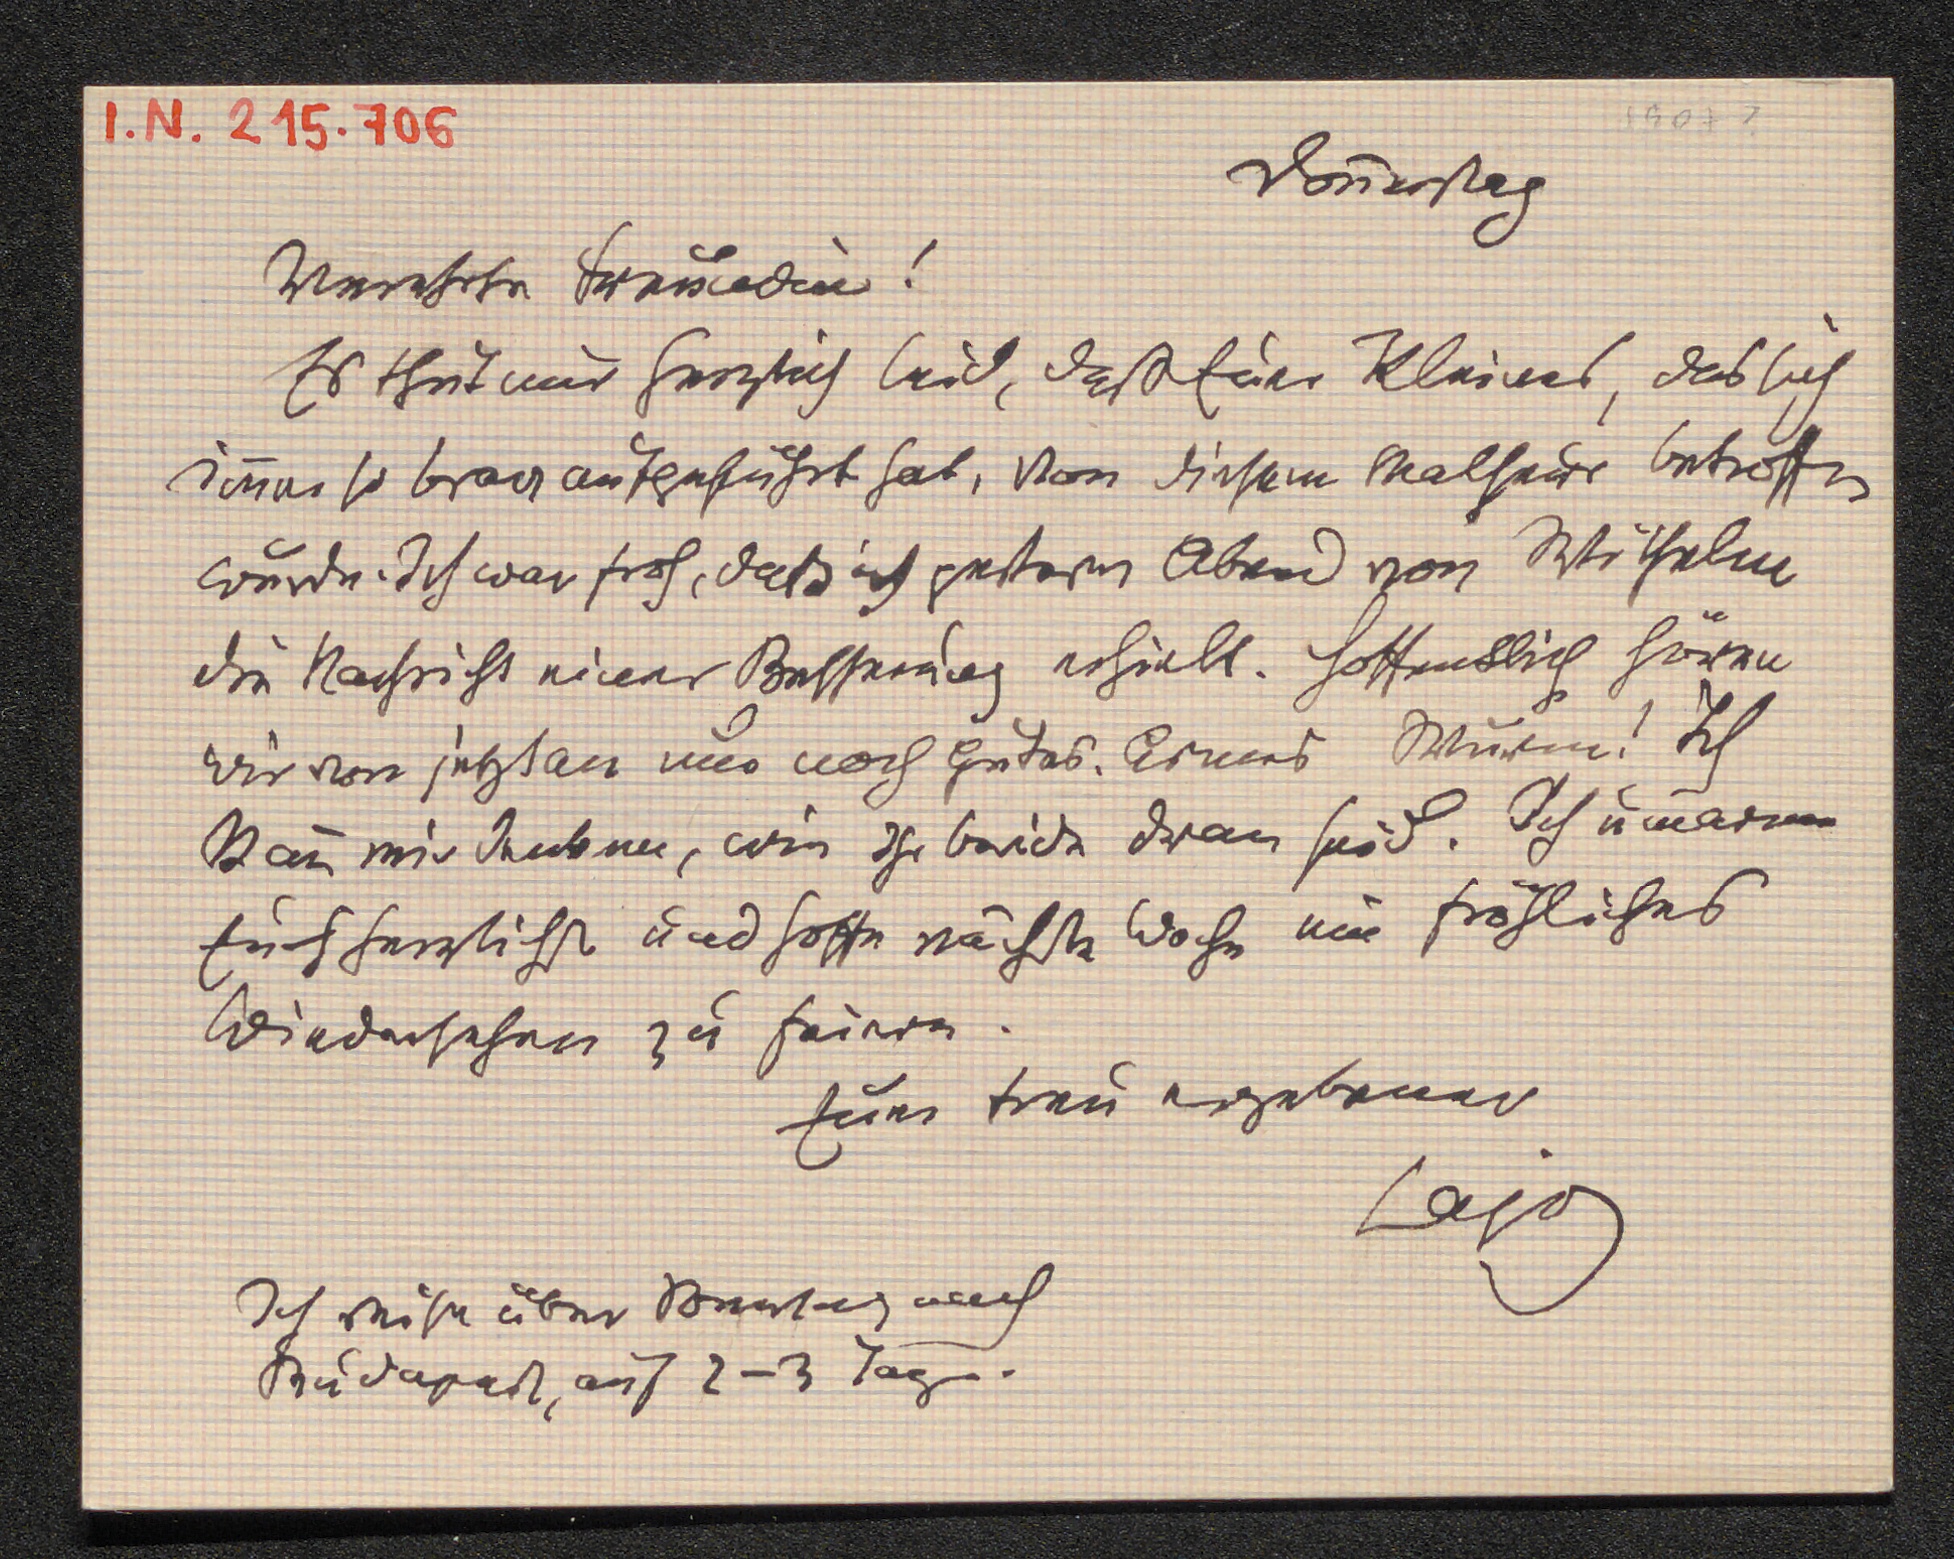 I.N. 215.706
1907 ?
Don̄erstag
Verehrte Freundin!
Es thut mir herzlich leid, daß Euer Kleines, das sich
im̄er so brav aufgeführt hat, von diesem Malheur betroffen
wurde. Ich war froh, daß ich gestern Abend von Wilhelm
die Nachricht einer Besserung erhielt. Hoffentlich hören
wir von jetzt an nur noch Gutes. Armes Wurm! Ich
kan̄ mir denken, wie Ihr beide dran seid. Ich umarme
Euch herzlichst und hoffe nächste Woche ein fröhliches
Wiedersehen zu feiern.
Euer treu ergebener
Lajos
Ich reise über Sonntag nach
Budapest, auf 2–3 Tage.